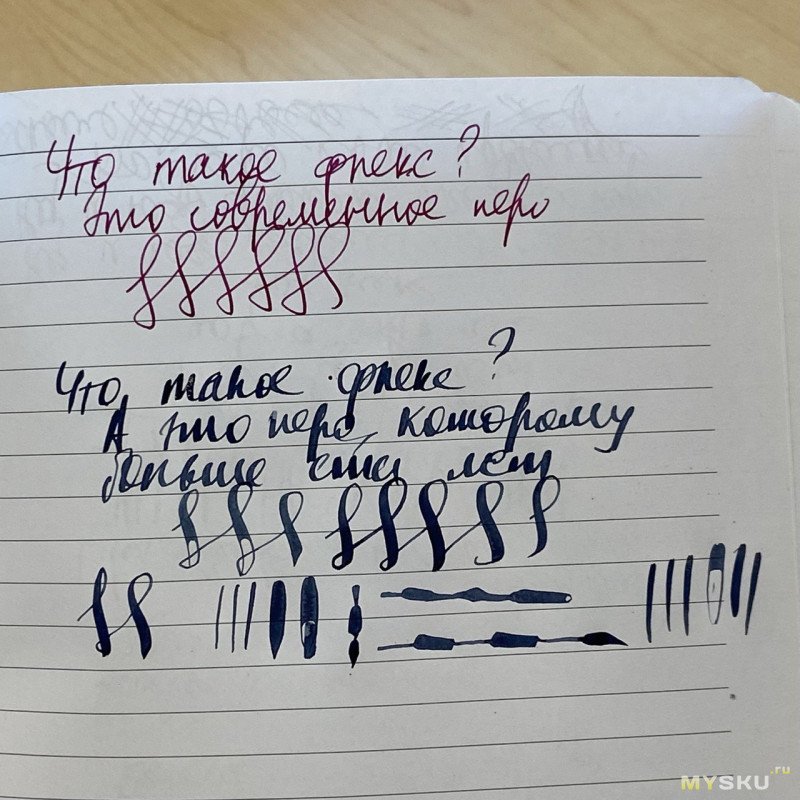 Что такое флекс?
Это современное перо
Что такое флекс?
А это перо, которому
больше ста лет
MYSKU.ru